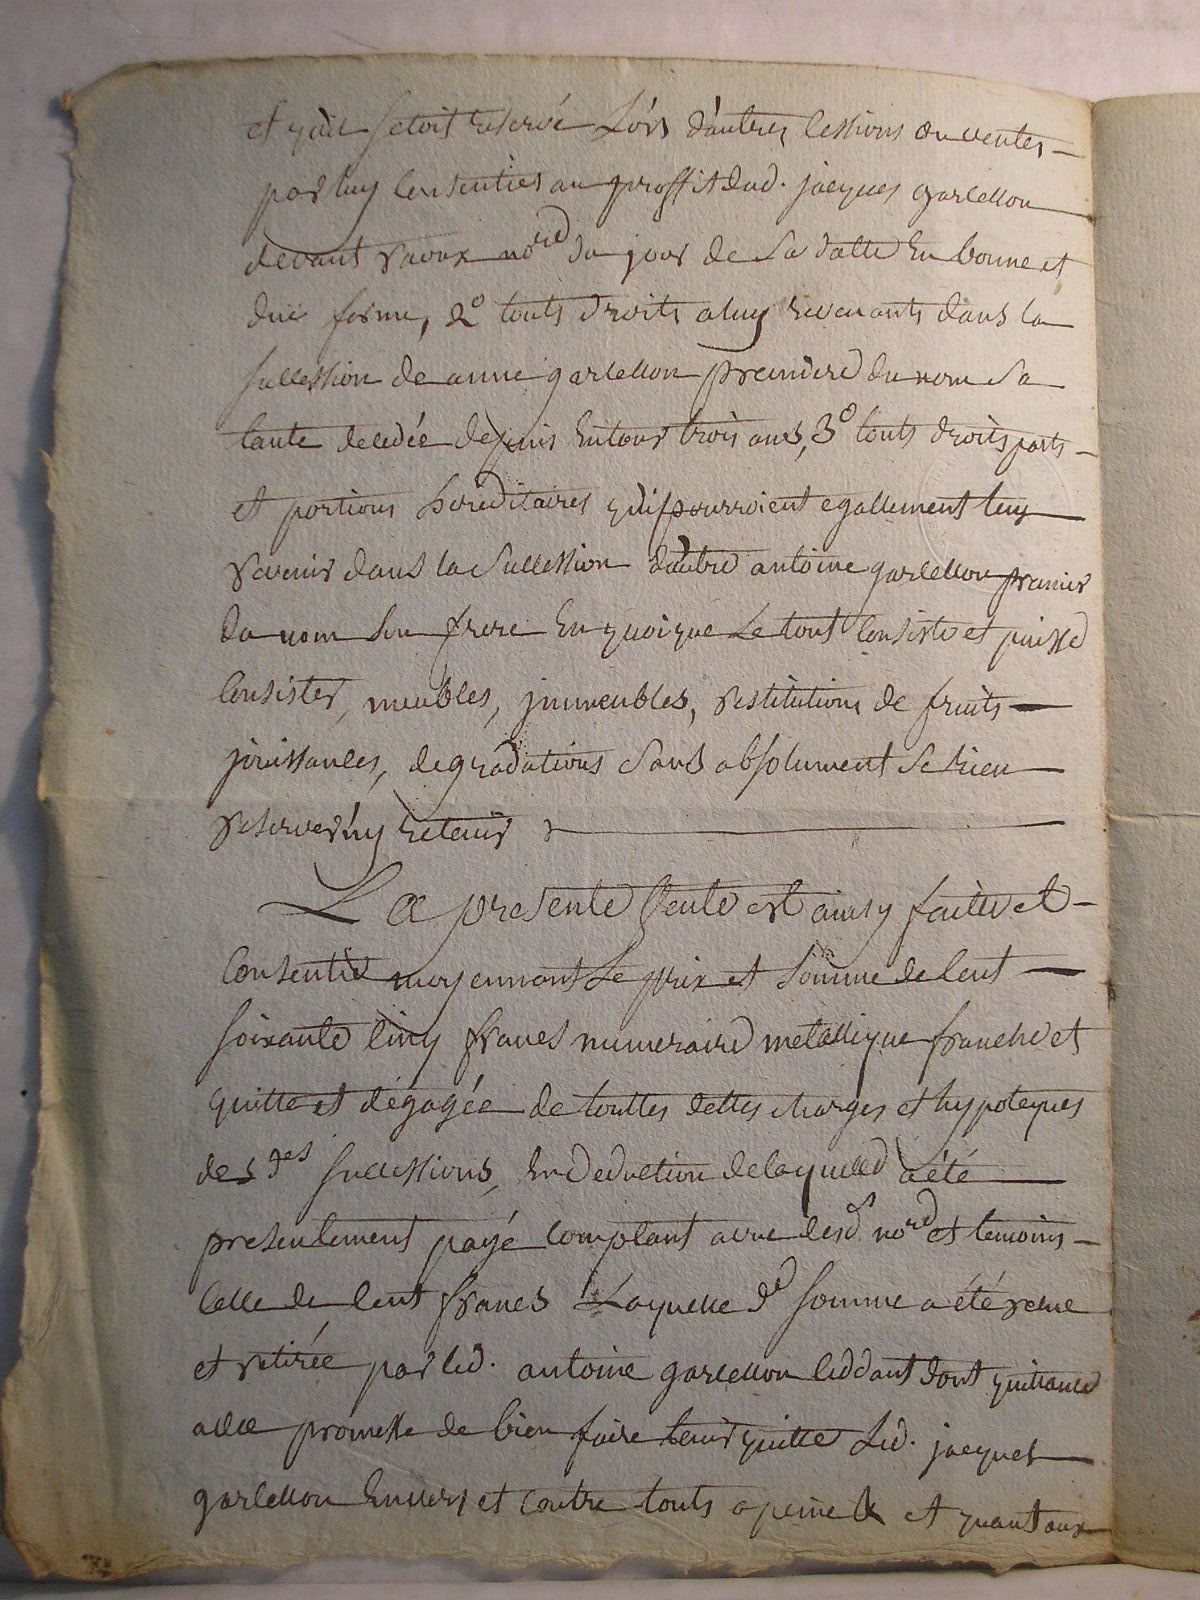 et qu'il s'etoit reservé Lors d'autres cessions ou ventes
par luy consenties au proffit dud. jacques garcellon
devant ravoux no^re du jour de sa datte En bonne et
duë forme, 2° touts droits a luy revenants dans la
succession de anne garcellon premiere du nom sa
tante decedée depuis Entour trois ans, 3° touts droits parts
et portions hereditaires qui pourroient egallement luy
revenir dans la succession d'autre antoine garcellon premier
du nom son frere En quoique Le tout consiste et puisse
consister, meubles, jmmeubles, restitutions de fruits
jouissances, degradations sans absolument se rien
reserver ny retenir
La presente Vente est ainsy faite et
consentie moyennant Le prix et somme de cent
soixante cinq francs numeraire metallique franche et
quitte et dégagée de touttes dettes charges et hypoteques
des d^es successions, En deduction de laquelle a été
presentement payé comptant a vue desd^s no^re et temoins
celle de cent francs Laquelle d^e somme a été reçue
et retirée par led. antoine garcellon ceddant dont quittance
avec promesse de bien faire tenir quitte Led. jacques
garcellon Envers et contre touts a peine & et quant aux